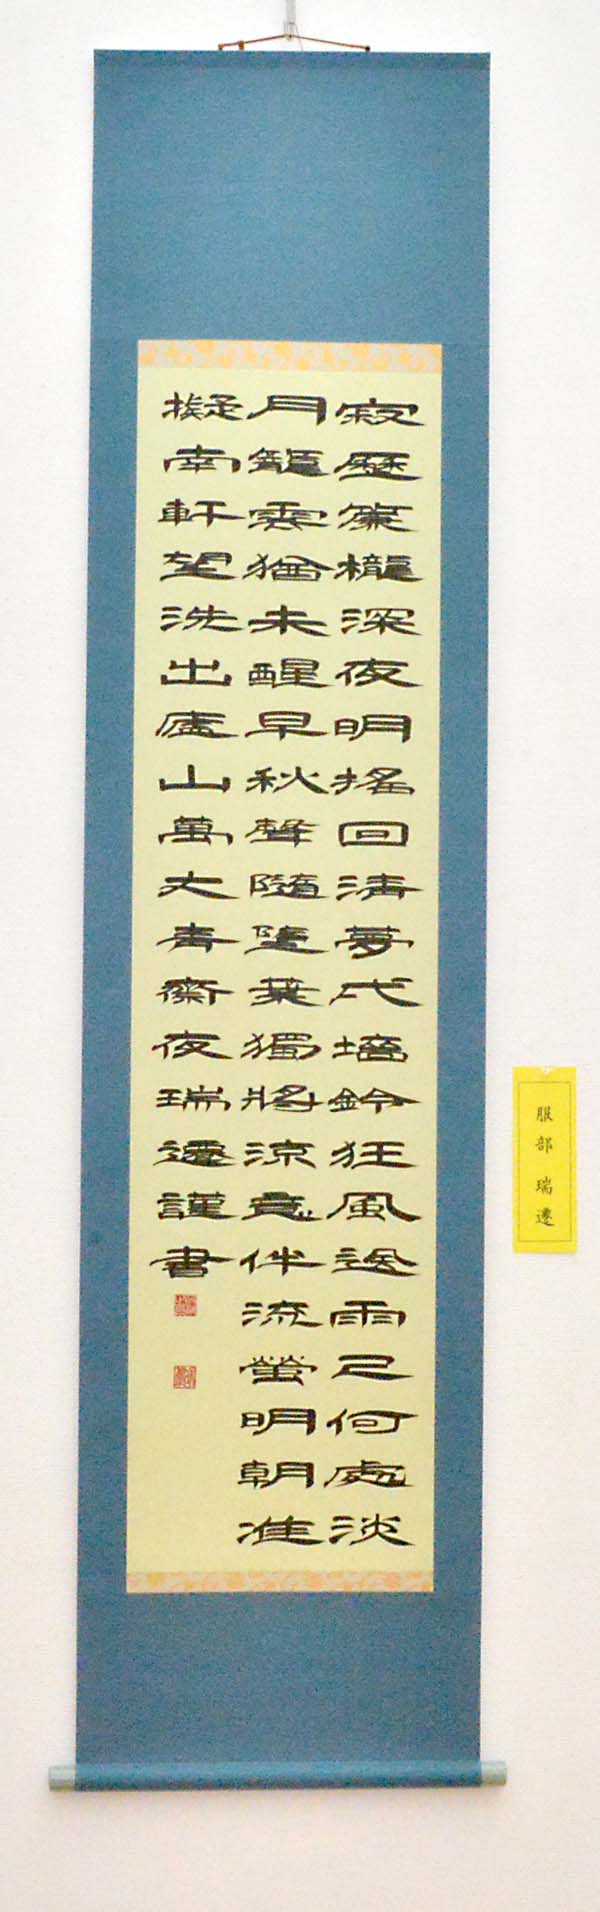 寂歷簾櫳深夜明搖回清夢戍墻鈴狂風送雨已何處淡
月籠雲猶未醒早秋聲隨墮葉獨將涼意伴流螢明朝准
擬南軒望洗出廬山萬丈青齋夜瑞遷謹書
服部 瑞遷